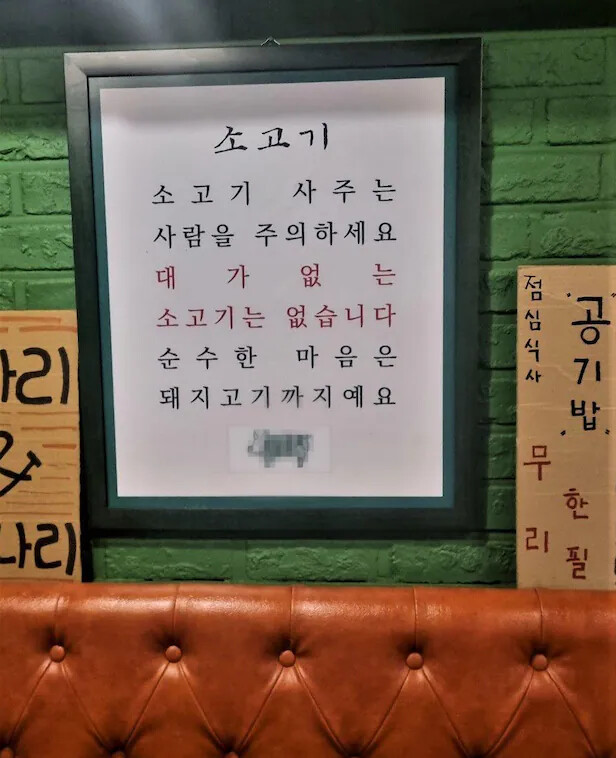 소고기
소고기 사주는
사람을 주의하세요
대가없는
소고기는 없습니다
순수한 마음은
돼지고기까지예요
나리
점심식사
공기밥
무한
리필